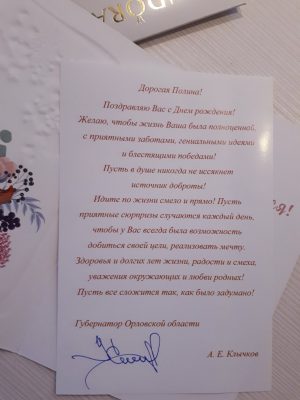 DÓRA
Дорогая Полина!
Поздравляю Вас с Днем рождения!
Желаю, чтобы жизнь Ваша была полноценной,
с приятными заботами, гениальными идеями
и блестящими победами!
Пусть в душе никогда не иссякнет
источник доброты!
Идите по жизни смело и прямо! Пусть
приятные сюрпризы случаются каждый день,
чтобы у Вас всегда была возможность
добиться своей цели, реализовать мечту.
Здоровья и долгих лет жизни, радости и смеха,
уважения окружающих и любви родных!
Пусть все сложится так, как было задумано!
Губернатор Орловской области
А. Е. Клычков
я!